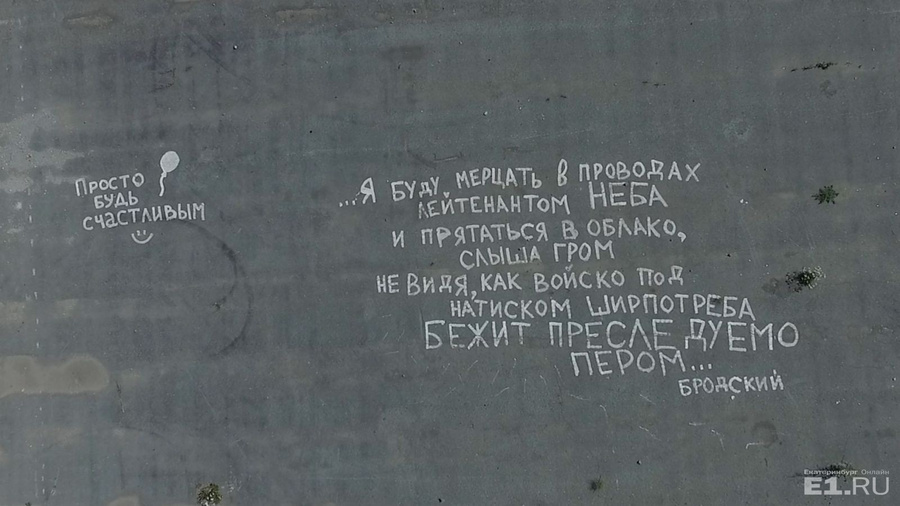 Просто
будь
счастливым
...Я буду мерцать в проводах
лейтенантом НЕБА
и прятаться в облако,
слыша гром
не видя, как войско под
натиском ширпотреба
БЕЖИТ ПРЕСЛЕДУЕМО
ПЕРОМ...
БРОДСКИЙ
Екатеринбург Онлайн
E1.RU